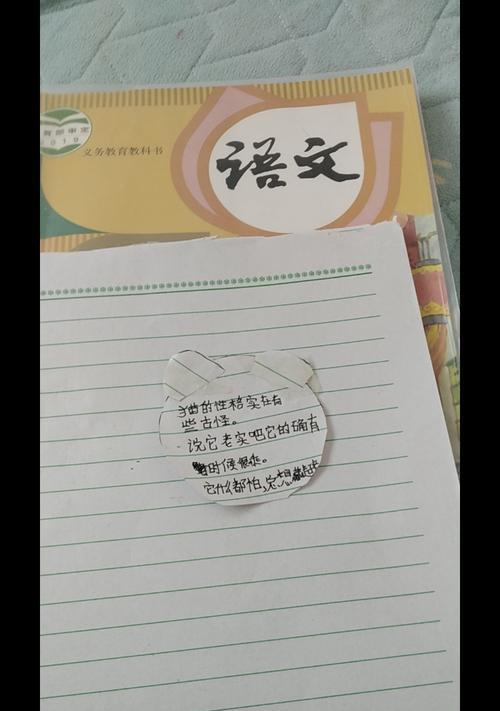 育部审定
2019
义务教育教科书
语文
猫的性格实在有
些古怪。
说它老实吧它的确有
时候很乖。
它什么都怕,